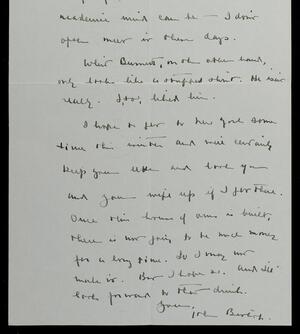 academic mind can be – I don't
often meet in these days.
Whit Burnett, on the other hand,
only looks like a stuffed shirt. He isn't
really. I, too, liked him.
I hope to get to New York some
time this winter and will certainly
keep you and look you
and your wife up if I get there.
Once this house of ours is built,
there is not going to be much money
for a long time. So I may not
make it. But I hope so. And I'll
look forward to that drink.
Yours,